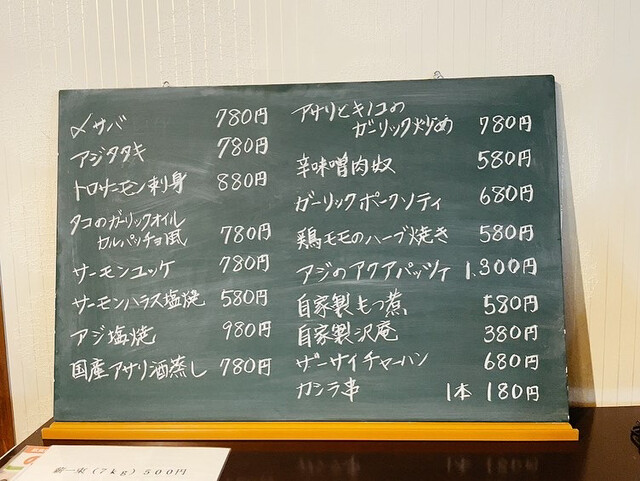 〆サバ 780円
アジタタキ 780円
トロサーモン刺身 880円
タコのガーリックオイル
カルパッチョ風 780円
サーモンユッケ 780円
サーモンハラス塩焼 580円
アジ塩焼 980円
国産アサリ酒蒸し 780円
アサリとキノコの
ガーリック炒め 780円
辛味噌肉奴 580円
ガーリックポークソティ 680円
鶏モモのハーブ焼き 580円
アジのアクアパッツァ 1,300円
自家製もつ煮 580円
自家製沢庵 380円
ザーサイチャーハン 680円
カシラ串 1本 180円
薪一束(7kg)500円